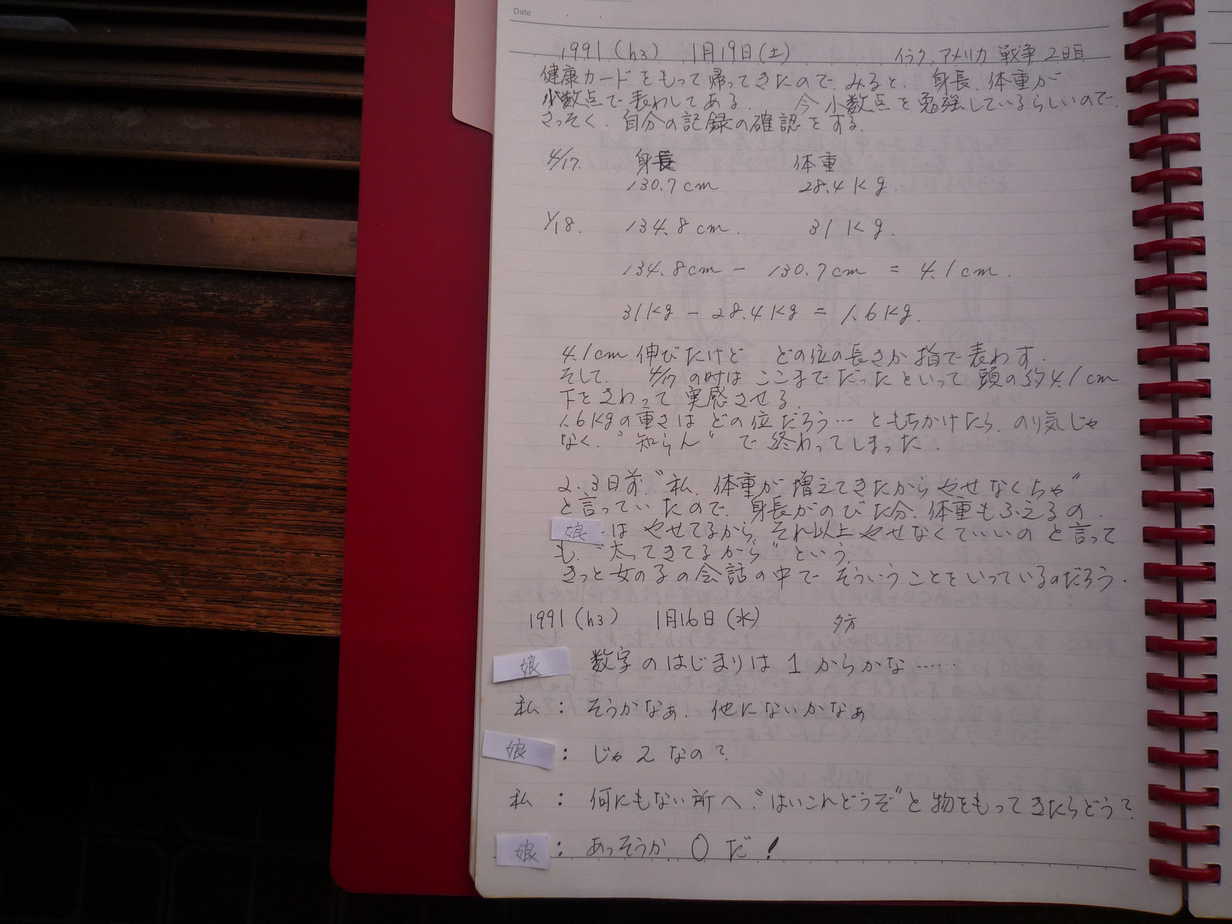 Date
1991 (h3) 1月19日(土) イラク、アメリカ 戦争 2日目
健康カードをもって帰ってきたので みると、身長、体重が
小数点で表わしてある。 今 小数点を勉強しているらしいので、
さっそく、自分の記録の確認をする。
4/17. 身長 体重
130.7cm 28.4kg.
1/18. 134.8cm. 31kg.
134.8cm - 130.7cm = 4.1cm.
31kg - 28.4kg = 1.6kg.
4.1cm 伸びたけど どの位の長さか 指で表わす.
そして、 4/17の時は ここまでだったといって 頭の約4.1cm
下をさわって 実感させる.
1.6kgの重さは どの位だろう… ともちかけたら、のり気じゃ
なく、"知らん" で終わってしまった.
2、3日前 "私、体重が増えてきたから やせなくちゃ"
と言っていたので、身長がのびた分、体重もふえるの.
娘 は やせてるから、それ以上やせなくていいの と言って
も、"太ってきてるから" という.
きっと女の子の会話の中で そういうことをいっているのだろう.
1991 (h3) 1月16日 (水) 夕方
娘 数字のはじまりは 1 からかな……
私 : そうかなぁ、他にないかなぁ
娘 : じゃ 2 なの?
私 : 何にもない所へ "はいこれどうぞ" と物をもってきたらどう?
娘 : あっそうか 0 だ!